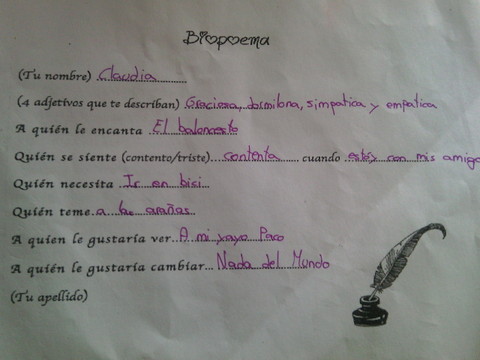 Biopoema
(Tu nombre) Claudia
(4 adjetivos que te describan) Graciosa, dormilona, simpatica y empatica
A quién le encanta El baloncesto
Quién se siente (contento/triste)... contenta ...... cuando estoy con mis amigo
Quién necesita Ir en bici
Quién teme a las arañas
A quien le gustaría ver... A mi yayo Paco
A quién le gustaría cambiar... Nada del Mundo
(Tu apellido)